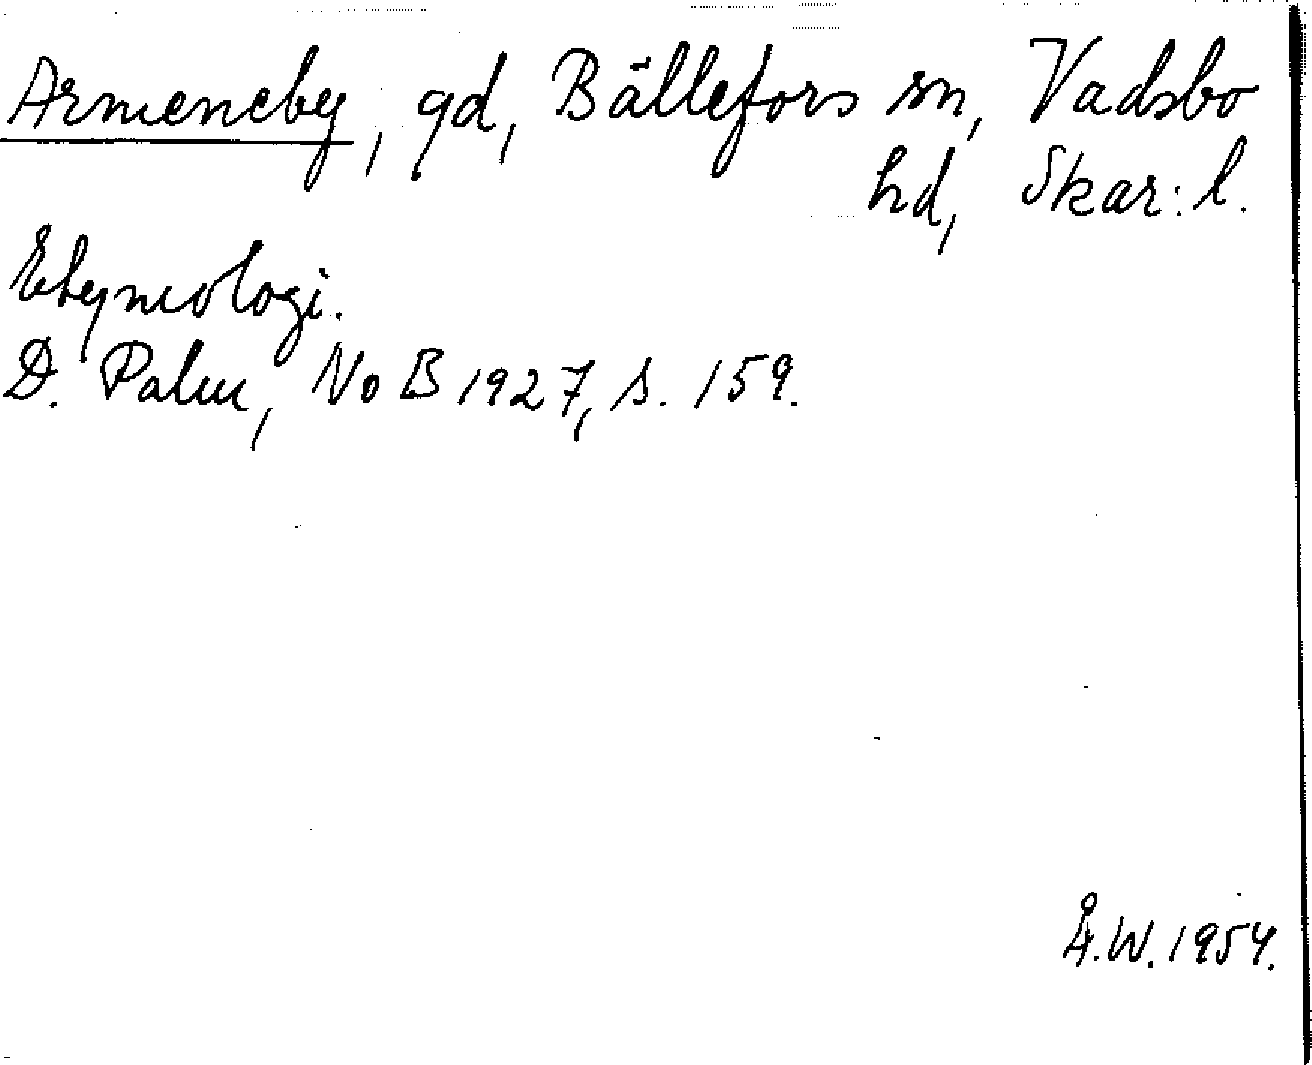 Armeneby, gd, Bällefors sn, Vadsbo
hd, Skar: l.
Etymologi.
D. Palm, NoB 1927, s. 159.
Å.W. 1954.